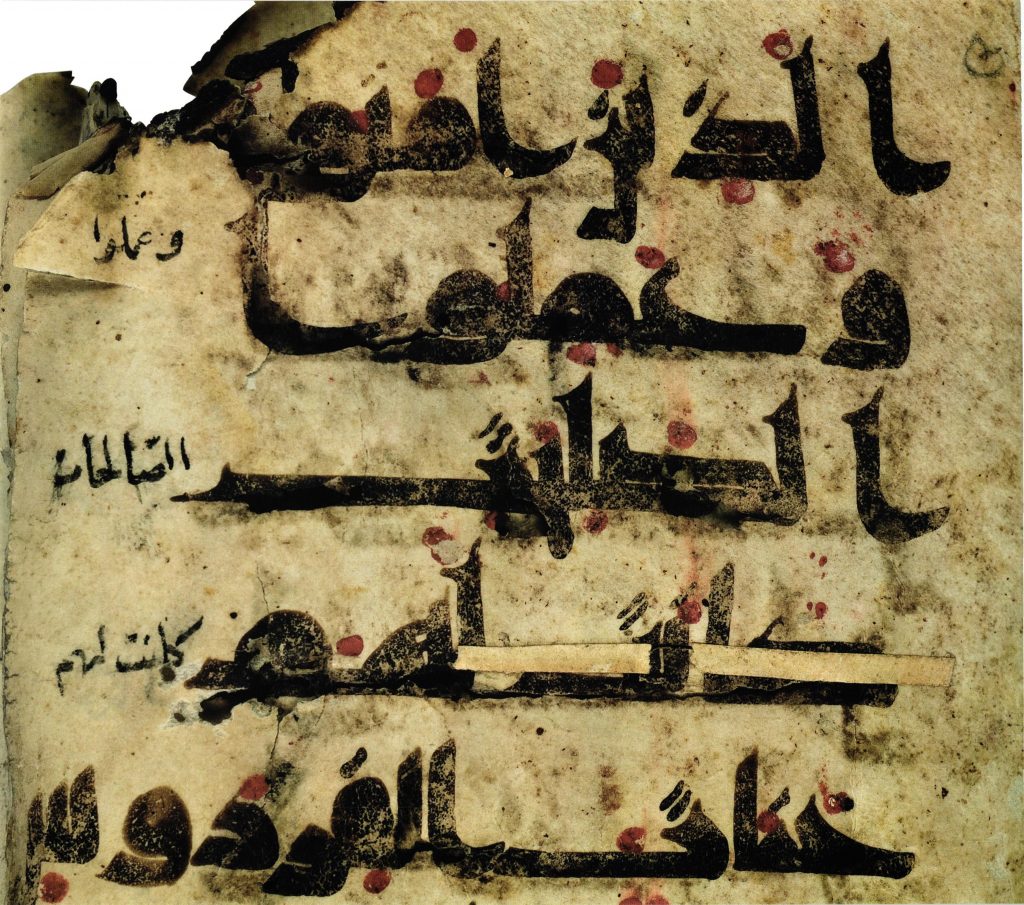 الذين امنو
وعملوا
وعملوا
الصلحت
الصالحات
كانت لهم
كانت لهم
جنات الفردوس